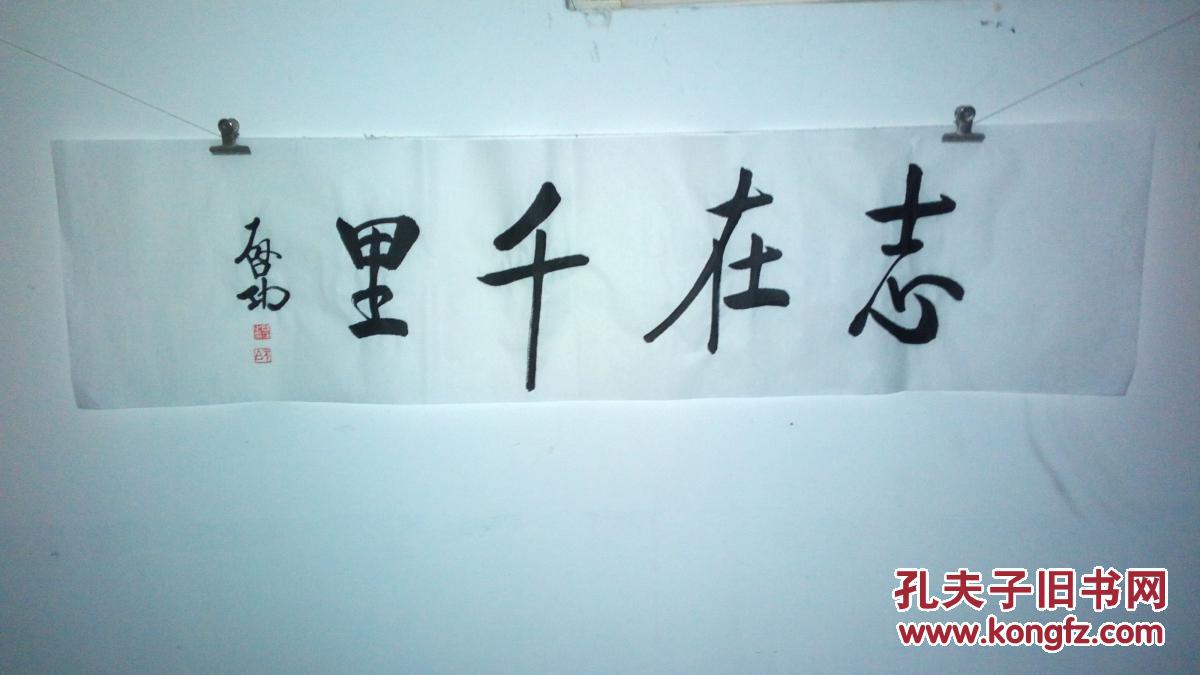 志在千里
启功
孔夫子旧书网
www.kongfz.com